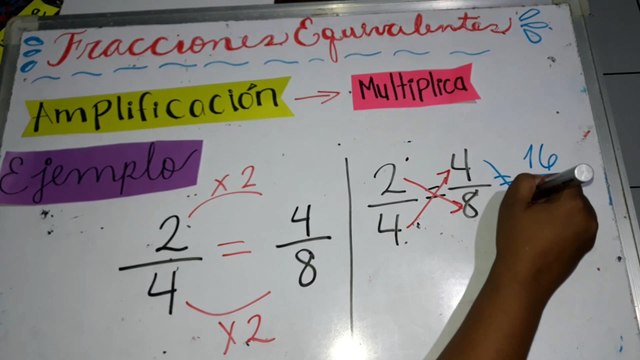 Fracciones Equivalentes
Amplificación → Multiplica
Ejemplo
x2
2/4 = 4/8
x2
2/4 = 4/8
16